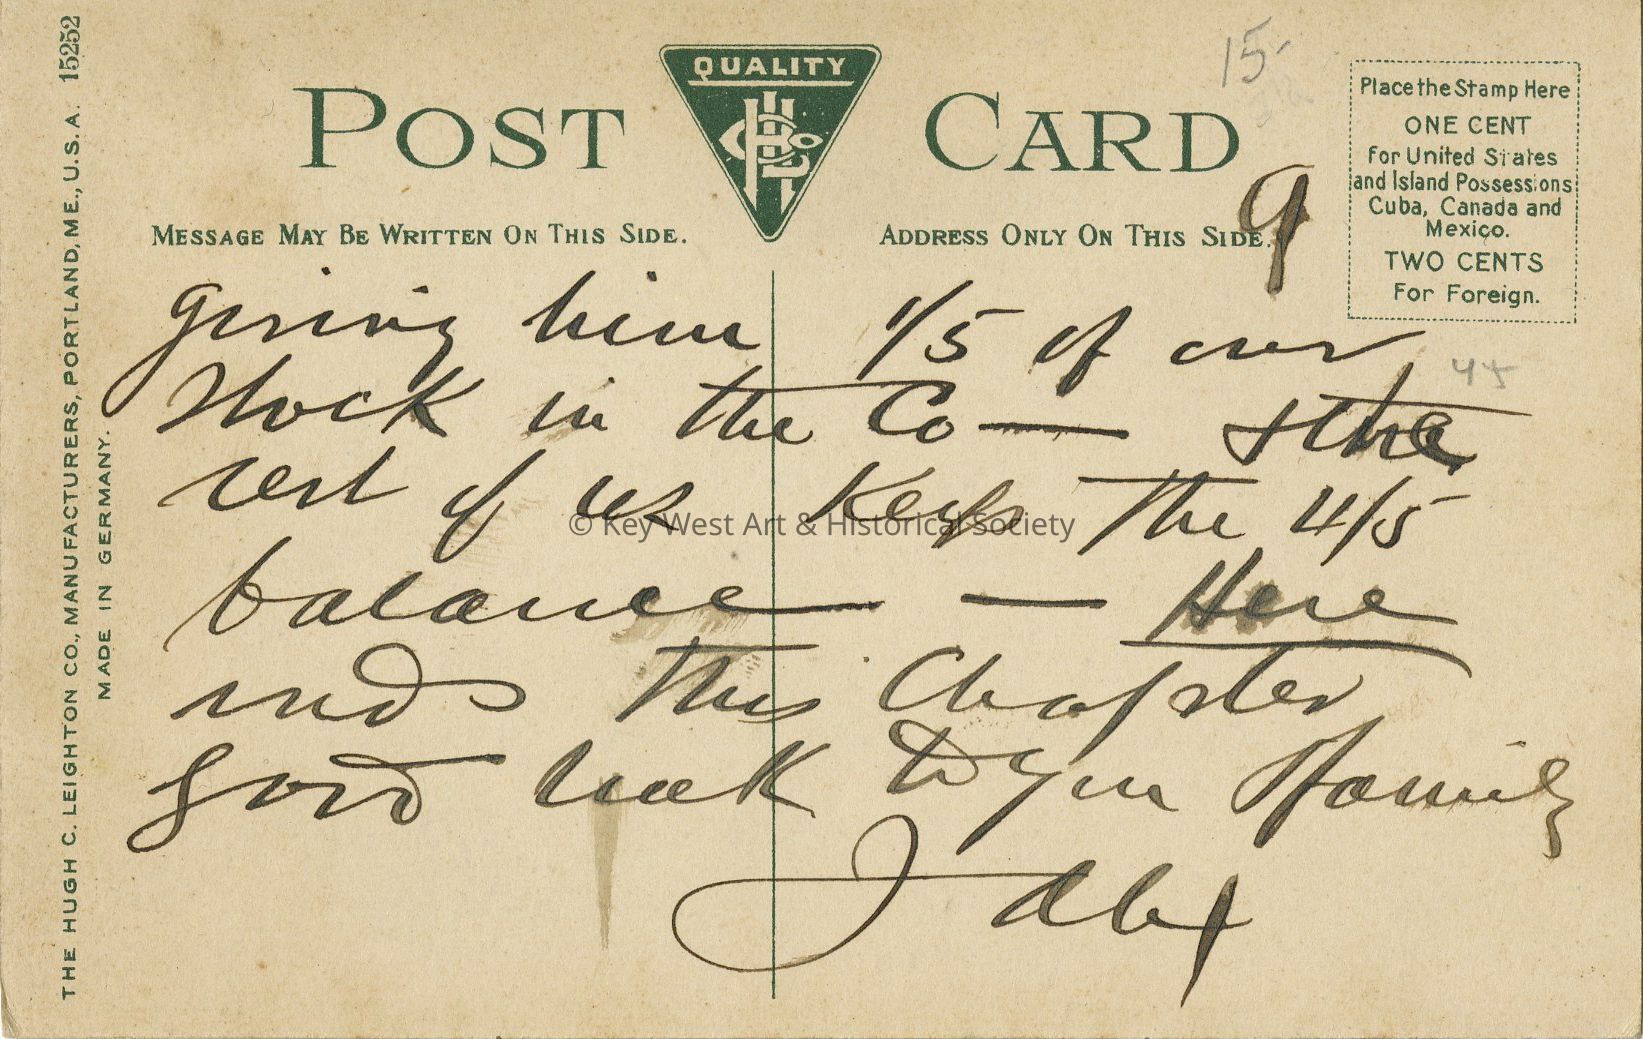 15252
THE HUGH C. LEIGHTON CO., MANUFACTURERS, PORTLAND, ME., U.S.A.
MADE IN GERMANY.
QUALITY
POST CARD
15
9
MESSAGE MAY BE WRITTEN ON THIS SIDE.
ADDRESS ONLY ON THIS SIDE.
Place the Stamp Here
ONE CENT
for United States
and Island Possessions
Cuba, Canada and
Mexico.
TWO CENTS
For Foreign.
giving him 1/5 of our
45
stock in the Co — + the
rest of us Keep the 4/5
balance — — Here
ends this Chapter
good luck to your Family
© Key West Art & Historical Society